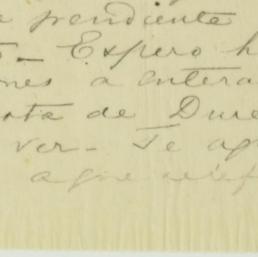 pendiente
Espero h
nes a entera
ota de Dure
ver- Te ag